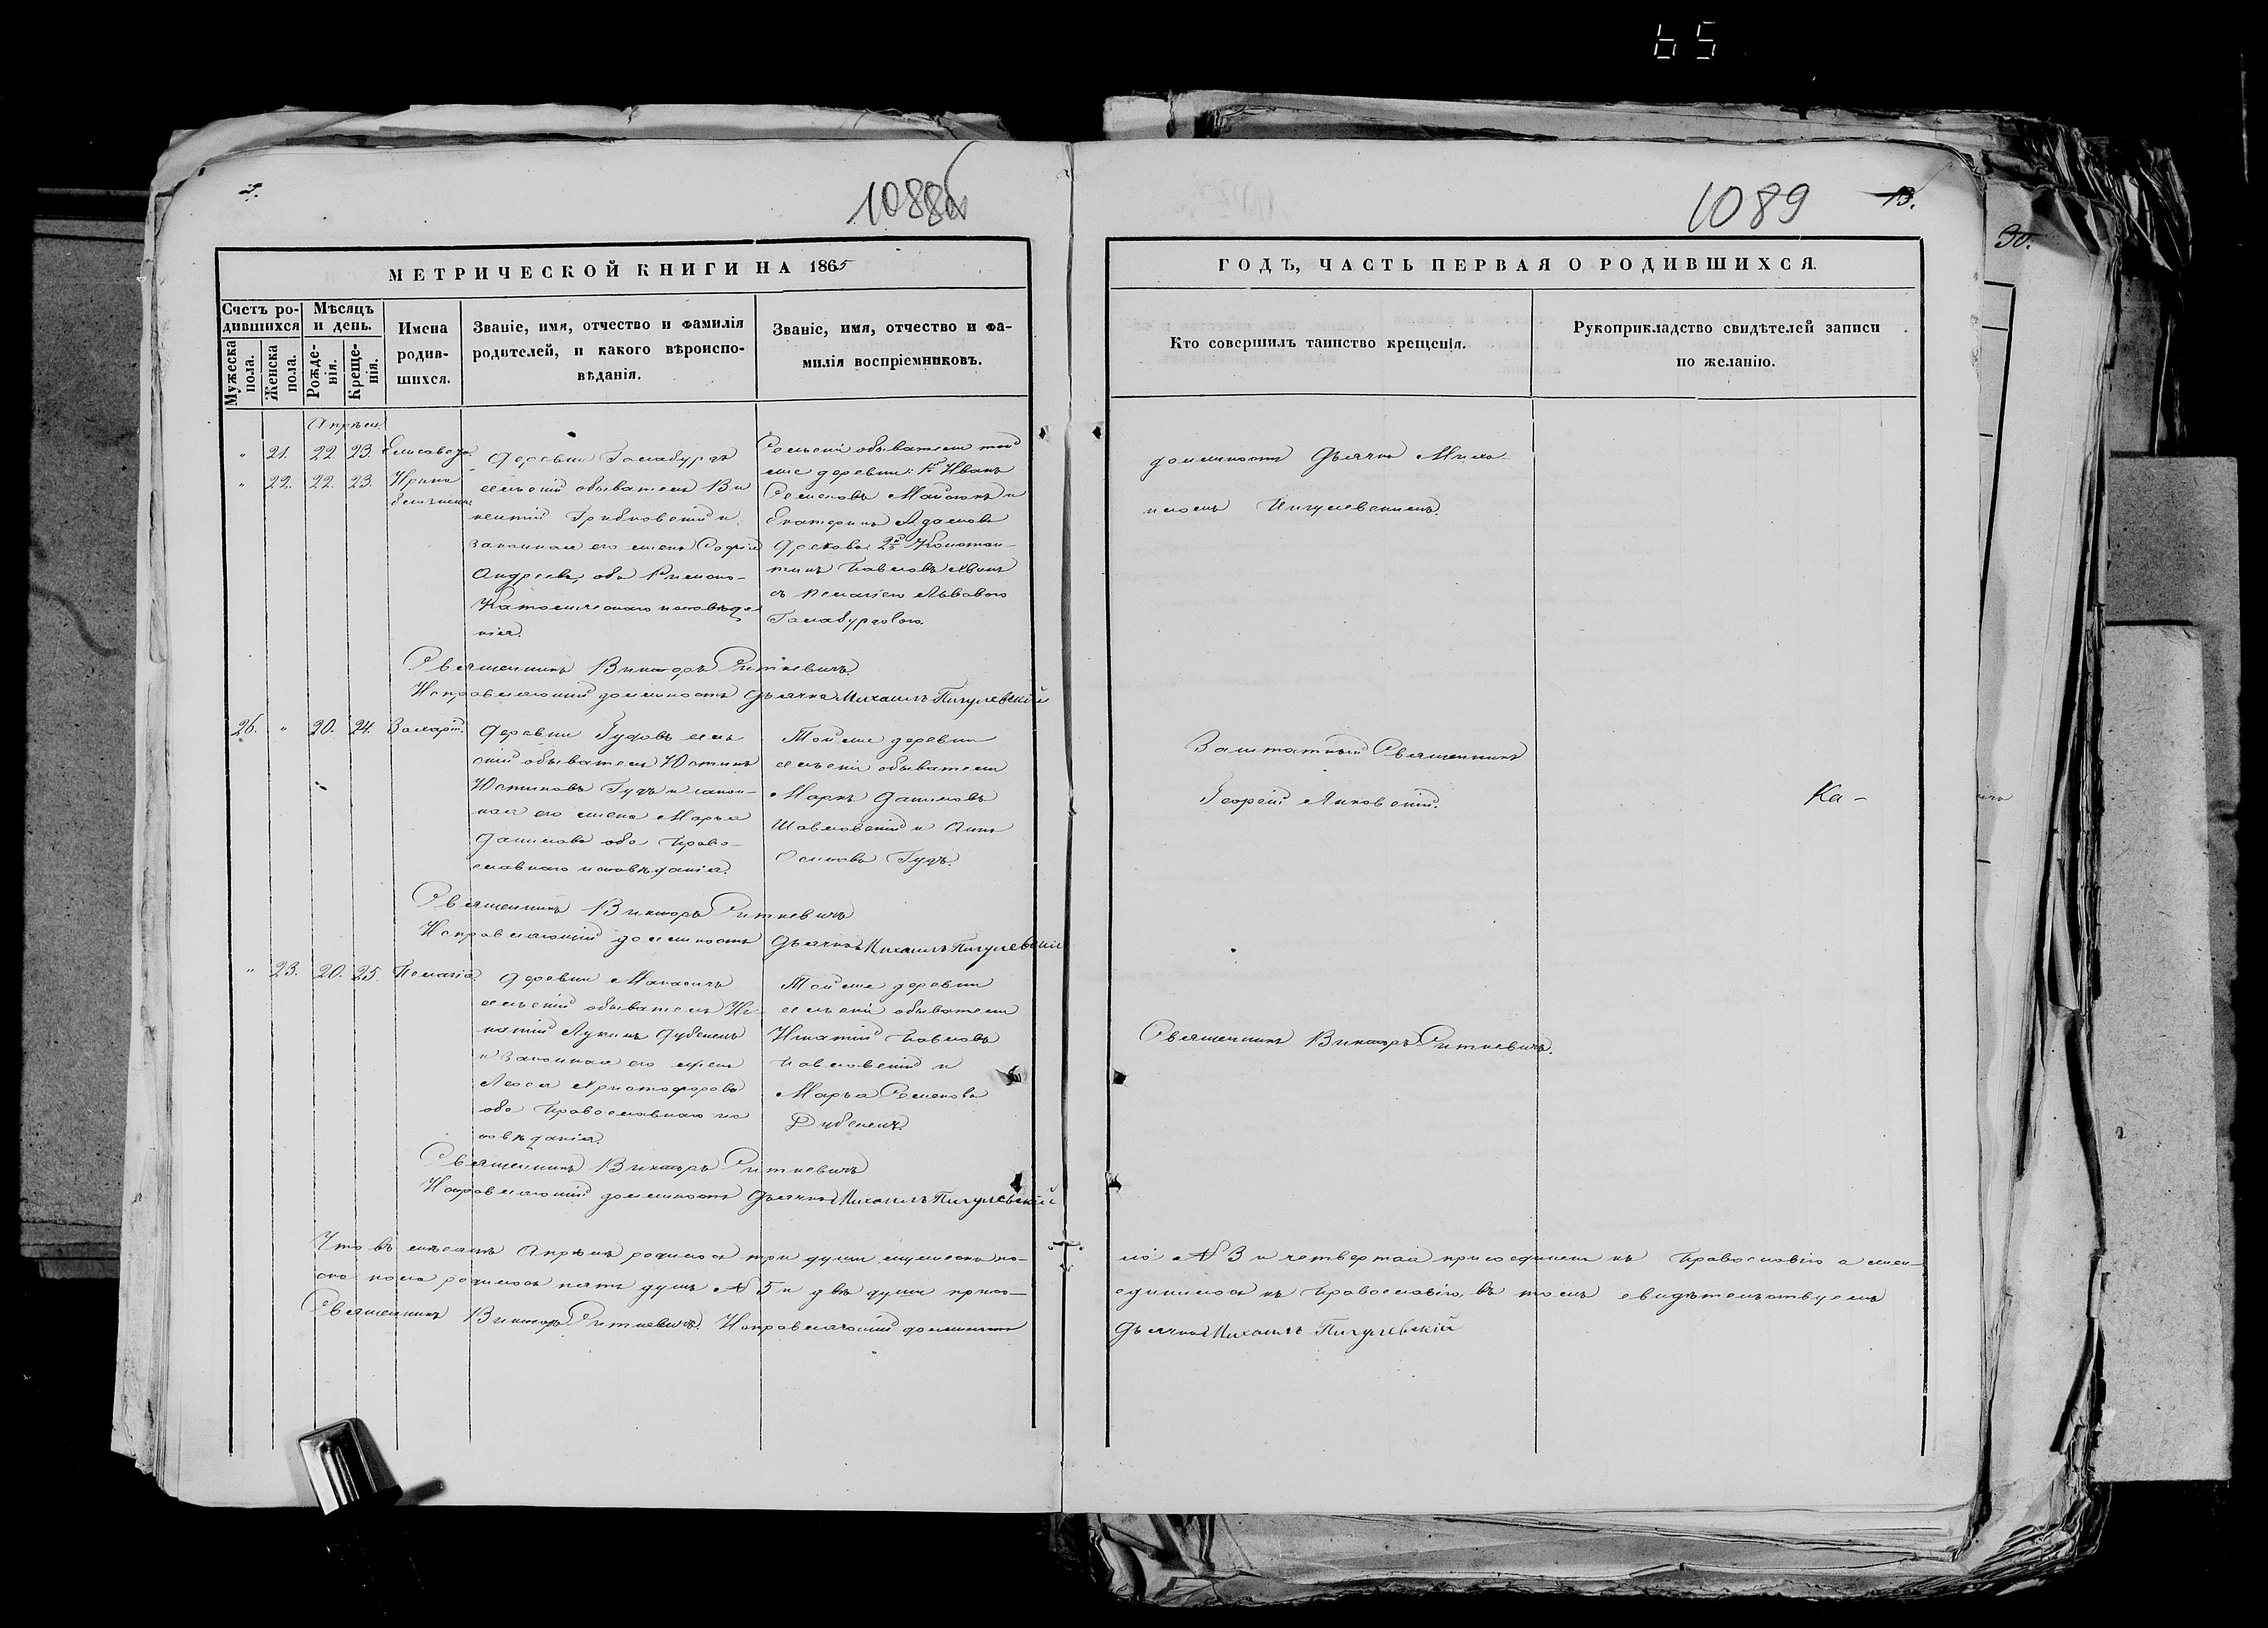 65
1088об
1089
13.
30.
МЕТРИЧЕСКОЙ КНИГИ НА 1865
Счетъ ро-
дившихся
Мужеска
пола.
Женска
пола.
Мѣсяцъ
и день.
Рожде-
нія.
Креще-
нія.
Имена
родив-
шихся.
Званіе, имя, отчество и фамилія
родителей, и какого вѣроиспо-
вѣданія.
Званіе, имя, отчество и фа-
милія воспріемниковъ.
Апрѣль
" 21. 22 23. Елисавета.
" 22. 22. 23. Ирина
близнецы
Деревни
сельскій обыватель Ви
кентій Грибковскій и
законная его жена Софія
Андреева, оба Римско-
Католическаго исповѣда
нія.
Сельскій обыватель той
же деревни: 1й Иванъ
Семеновъ и
Екатерина Адамова
2й Констан-
тинъ Павловъ
съ Пелагіею Львовою
Священникъ Викторъ Ситкевичъ.
Исправляющій должность Дьячка Михаилъ Пигулевскій
26. " 20. 24. Захарій.
Деревни Гудовъ сель
скій обыватель Юстинъ
Юстиновъ Гудъ и закон-
ная его жена Марья
Данилова оба Право-
славнаго исповѣданія.
Той же деревни
сельскій обыватель
Маркъ Даниловъ
Шавловскій и Анна
Осипова Гудъ.
Священникъ Викторъ Ситкевичъ
Исправляющій должность Дьячка Михаилъ Пигулевскій
" 23. 20. 25. Пелагіа.
Деревни
сельскій обыватель Иг-
натій Лукинъ Дубенецъ
и законная его жена
Христофорова
оба Православнаго ис
повѣданія.
Той же деревни
сельскій обыватель
Игнатій Павловъ
Павловскій и
Марья Семенова
Дубенецъ.
Священникъ Викторъ Ситкевичъ
Исправляющій должность Дьячка Михаилъ Пигулевскій
Что въ мѣсяцѣ Апрѣлѣ родилось три души мужеска по-
ска пола родилось пять душъ № 5 и двѣ души присо-
Священникъ Викторъ Ситкевичъ. Исправляющій должность
ГОДЪ, ЧАСТЬ ПЕРВАЯ О РОДИВШИХСЯ.
Кто совершилъ таинство крещенія.
Рукоприкладство свидѣтелей записи
по желанію.
должность Дьячка Миха
иломъ Пигулевскимъ.
Заштатный Священникъ
Георгій Янковскій.
Ка-
Священникъ Викторъ Ситкевичъ.
ло № 3 и четвертая присоединена къ Православію а жен-
единилось къ Православію, въ томъ свидѣтельствуемъ
Дьячка Михаилъ Пигулевскій